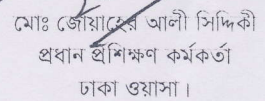 মোঃ জোয়াহের আলী সিদ্দিকী
প্রধান প্রশিক্ষণ কর্মকর্তা
ঢাকা ওয়াসা।